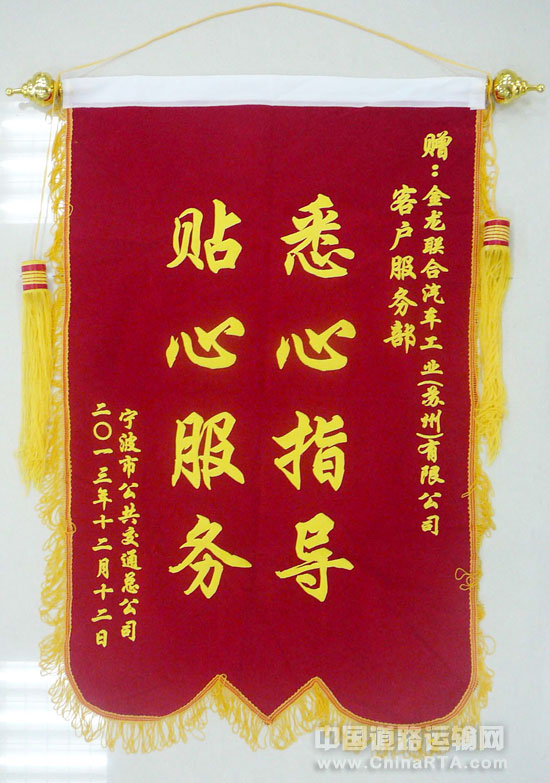 赠：金龙联合汽车工业(苏州)有限公司
客户服务部
悉心指导
贴心服务
宁波市公共交通总公司
二〇一三年十二月十二日
中国道路运输网
www.ChinaRTA.com